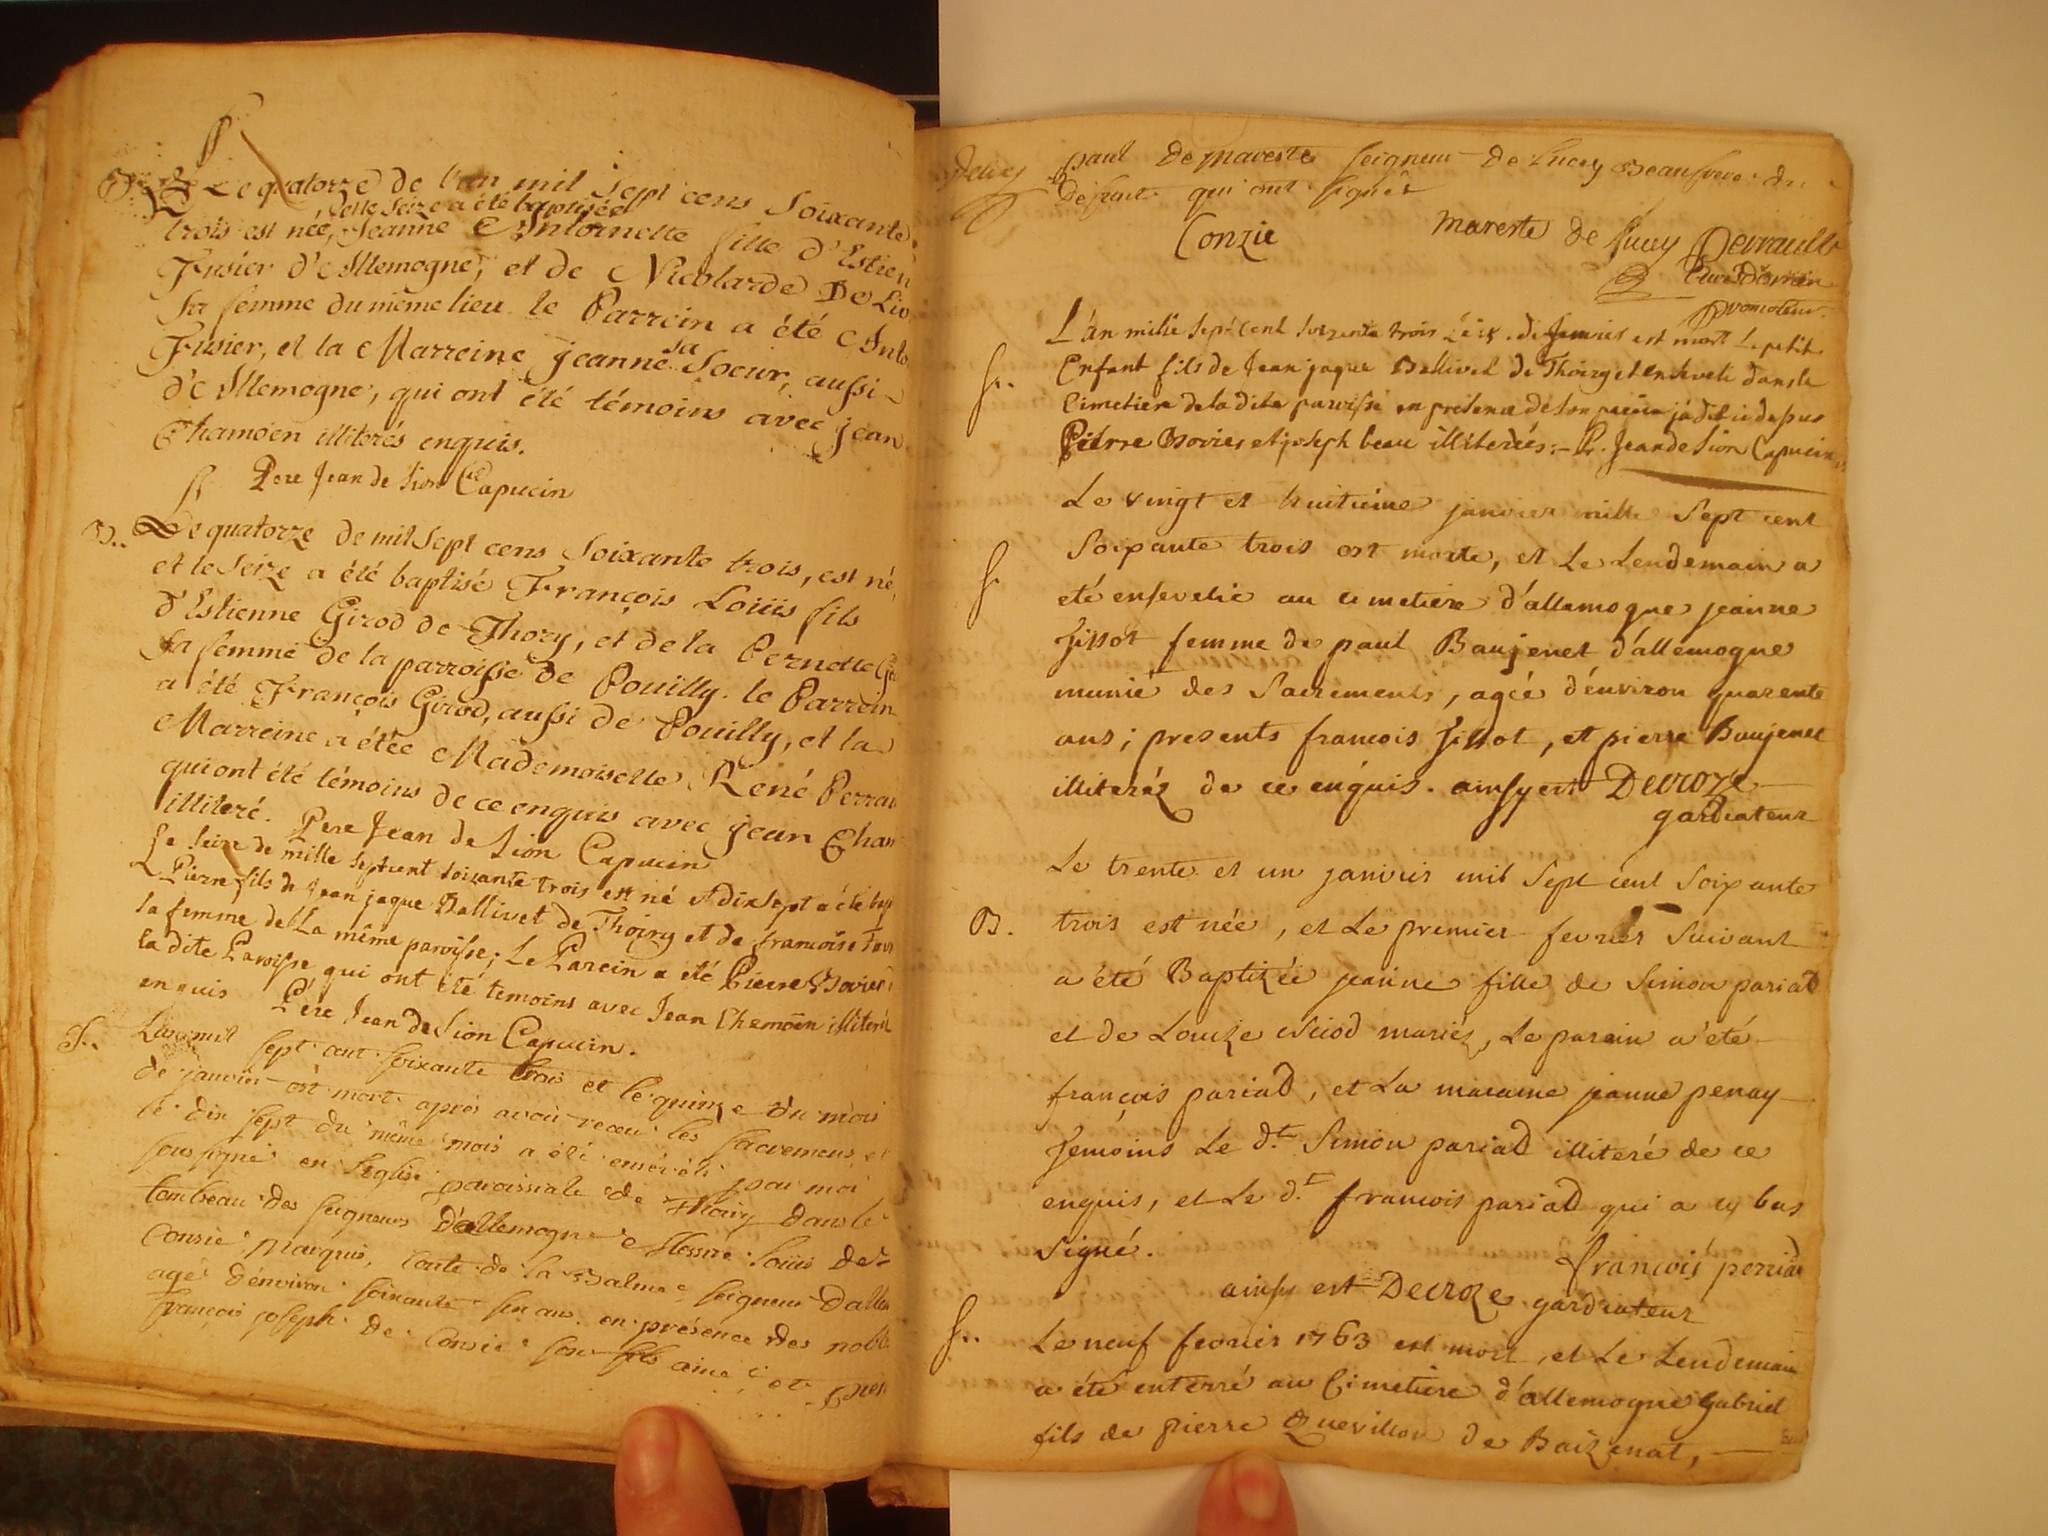 Le quatorze de l'an mil sept cens soixante
et le seize a été baptisée
trois est née, Jeanne Antoinette fille d'Estien
Fusier d'Allemogne, et de Nicolarde De Liv
sa femme du même lieu. le Parrein a été Anto
Fusier, et la Marreine jeanne sa Soeur, aussi
d'Allemogne, qui ont été témoins avec jean
Chamoen illiterés enquis.
Pere Jean de Sion Capucin
B.. Le quatorze de mil sept cens soixante trois, est né,
et le seize a été baptisé François Loüis fils
d'Estienne Girod de Thory, et de la Pernette
sa femme de la parroisse de Pouilly. le Parrein
a été François Girod, aussi de Pouilly, et la
Marreine a étée Mademoiselle René Perrau
qui ont été témoins de ce enquis avec jean Cham
illiteré. Pere Jean de Sion Capucin
Le seize de mille septcent soixante trois est né et dix sept a été bap
Pierre fils de Jean jaque Ballivet de Thoiry et de francoise
la femme de La même paroisse; Le Parein a été Pierre Bovier
la dite Paroisse qui ont été temoins avec Jean Chemöen illiteré
enquis Père Jean de Sion Capucin.
S.. L'an mil sept cent soixante trois et le quinze du mois
de janvier est mort aprés avoir receu les sacremens et
le dix sept du même mois a été enséveli par moi
soussigné en l'eglise paroissiale de Thoiry dans le
tombeau des seigneurs D'allemogne Messire Loüis de
Consié marquis, Conte de la Balme seigneur D'allem
agé d'environ soixante six ans en présence des noble
françois joseph de Consié son fils ainé, et
paul De mareste seigneur de Lucey Beaufrere du
Défunt qui ont signés
Conzie mareste de Lucey Derrault
Curé d'ornex
promoteur.
L'an mille sept cent soixente trois Le de Janvier est mort Le petit
S.. Enfant fils de Jean jaque Ballivet de Thoiry et enseveli dans le
Cimetiere de la dite paroisse en presence de son ci dessus
Pierre Bovier et joseph beau illiterées. P. Jean de Sion Capucin
Le vingt et huitieme janvier mille sept cent
soixante trois est morte, et Le Lendemain a
S. eté ensevelie au cimetiere d'allemogne jeanne
Tissot femme de paul Baujenet d'allemogne
munié des sacrements, ageé d'environ quarente
ans; presents francois Tissot, et pierre Baujenet
illiteréz de ce enquis. ainsy est Decroze
gardiateur
Le trente et un janvier mil sept cent soixante
B. trois est née, et Le premier fevrier suivant
a été Baptizée jeanne fille de Simon pariad
et de Louize Nicod mariéz, Le parain a eté
françois pariad, et La maraine jeanne penay
Temoins Le d.t Simon pariad illiteré de ce
enquis, et Le d.t francois pariad qui a cy bas
signé. francois perriad
ainsy est Decroze gardiateur
S.. Le neuf fevrier 1763 est mort, et Le Lendemain
a été enterré au Cimetiere d'allemogne Gabriel
fils de pierre Quevillon de Baizenat,